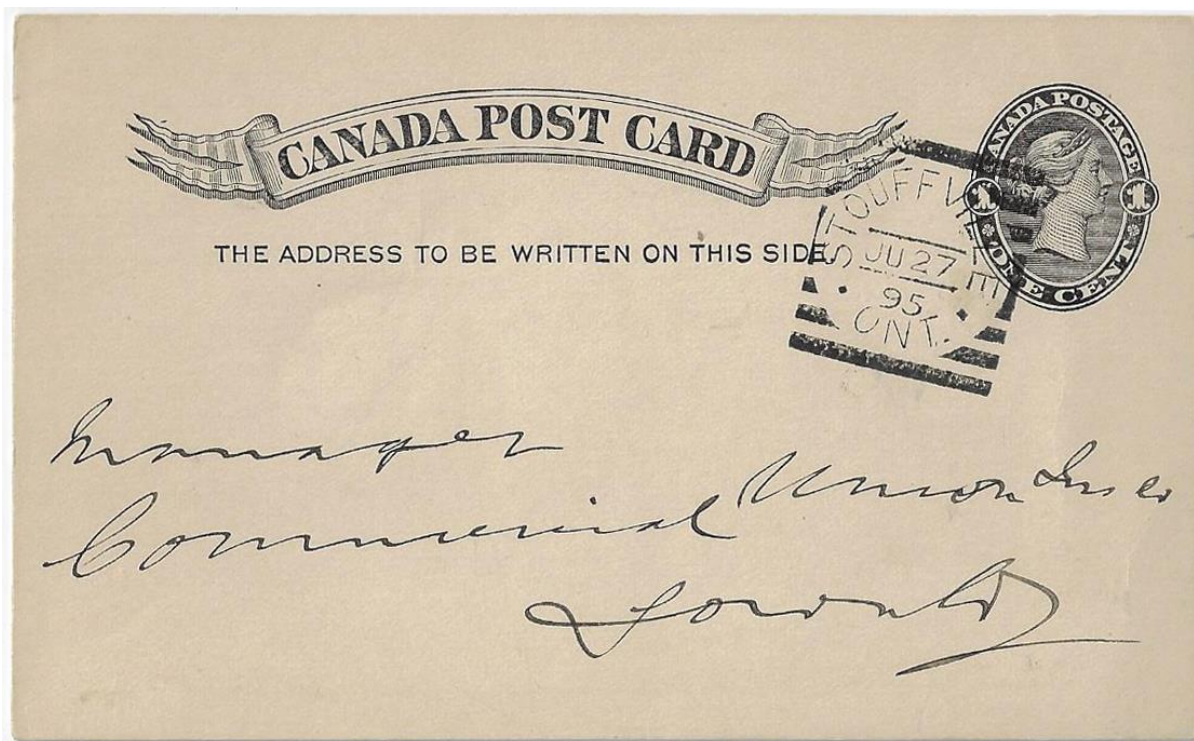 CANADA POST CARD
CANADA POSTAGE
1 1
ONE CENT
THE ADDRESS TO BE WRITTEN ON THIS SIDE.
STOUFFVILLE
JU 27
95
ONT.
Manager
Commercial Union Ins Co
Toronto